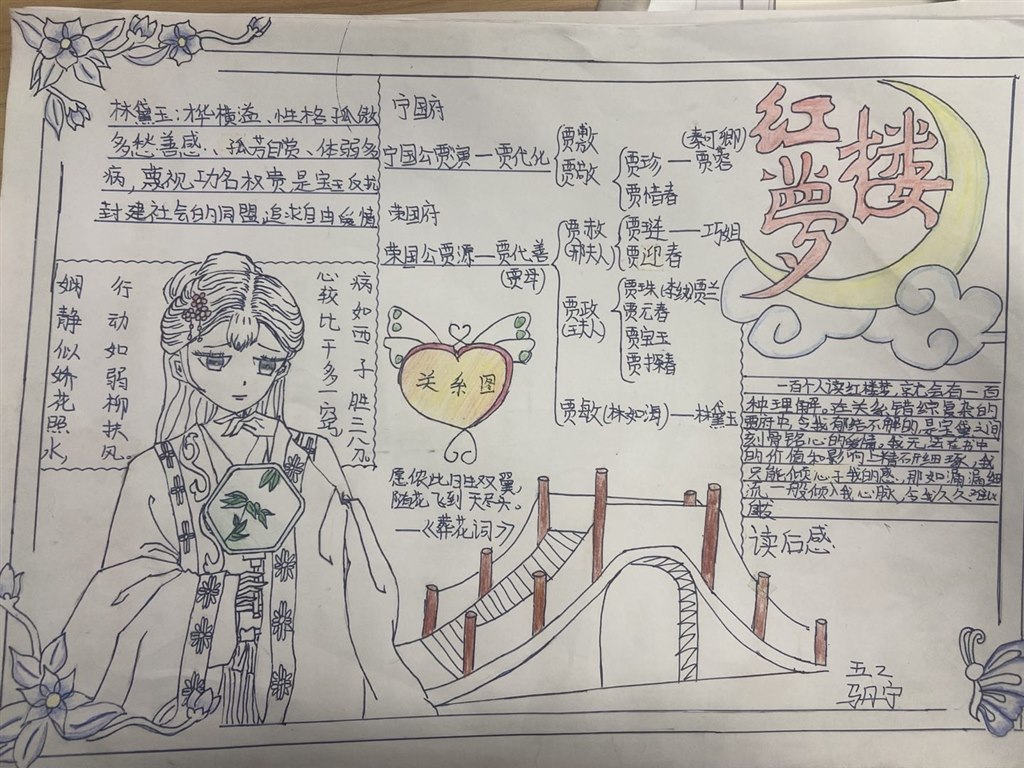 红楼梦
林黛玉:桦横溢、性格孤傲
多愁善感、孤芳自赏、体弱多
病,蔑视功名权贵是宝玉反抗
封建社会的同盟追求自由爱情
娴静似娇花照水,
行动如弱柳扶风。
心较比干多一窍
病如西子胜三分。
宁国府
宁国公贾演—贾代化
贾敷
贾敬
贾珍—贾蓉
(秦可卿)
贾惜春
荣国府
荣国公贾源—贾代善
(贾母)
贾赦
(邢夫人)
贾琏—巧姐
贾迎春
贾政
(王夫人)
贾珠(李纨)贾兰
贾元春
贾宝玉
贾探春
贾敏(林如海)—林黛玉
关系图
愿侬此日生双翼,
随花飞到天尽头。
—《葬花词》
一百个人读红楼梦,就会有一百
种理解。在关系错综复杂的
贾府中,令我都给不解的是宝黛之间
刻骨铭心的爱情。我无法在书中
的价值和影响上精研细琢,我
只能倾心于我的感,那如滴滴细
流,一般倾入我心脉,令我久久难以
读后感
五2
马丹宁